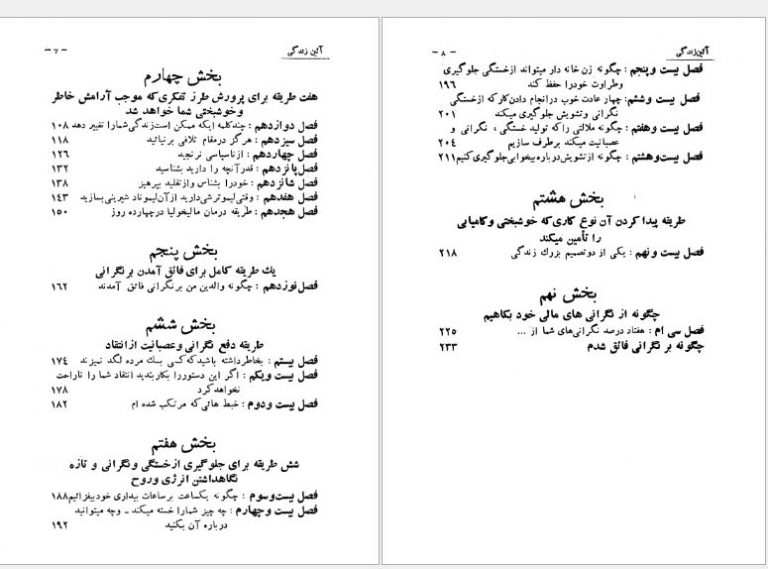 آئین زندگی
- ۷ -
بخش چهارم
هفت طریقه برای پرورش طرز تفکری که موجب آرامش خاطر
و خوشبختی شما خواهد شد
فصل دوازدهم : چند کلمه ایکه ممکن است زندگی شما را تغییر دهد ۱۰۸
فصل سیزدهم : هرگز درمقام تلافی برنیائید ۱۱۸
فصل چهاردهم : ازناسپاسی نرنجید ۱۲۶
فصل پانزدهم : قدرآنچه را دارید بشناسید ۱۳۲
فصل شانزدهم : خودرا بشناس وازتقلید بپرهیز ۱۳۸
فصل هفدهم : وقتی لیموترشی دارید ازآن لیموناد شیرینی بسازید ۱۴۳
فصل هجدهم : طریقه درمان مالیخولیا درچهارده روز ۱۵۰
بخش پنجم
یك طریقه کامل برای فائق آمدن برنگرانی
فصل نوزدهم : چگونه والدین من برنگرانی فائق آمدند ۱۶۲
بخش ششم
طریقه دفع نگرانی وعصبانیت ازانتقاد
فصل بیستم : بخاطرداشته باشید که کسی بسك مرده لگد نمیزند ۱۷۴
فصل بیست ویکم : اگر این دستوررا بکاربندید انتقاد شما را ناراحت
نخواهد کرد ۱۷۸
فصل بیست ودوم : خبط هائی که مرتکب شده ام ۱۸۲
بخش هفتم
شش طریقه برای جلوگیری ازخستگی ونگرانی و تازه
نگاهداشتن انرژی وروح
فصل بیست وسوم : چگونه یکساعت برساعات بیداری خودبیفزائیم ۱۸۸
فصل بیست وچهارم : چه چیز شمارا خسته میکند ـ وچه میتوانید
درباره آن بکنید ۱۹۲
آئین زندگی
- ۸ -
فصل بیست وپنجم : چگونه زن خانه دار میتواند ازخستگی جلوگیری
وطراوت خودرا حفظ کند ۱۹۶
فصل بیست وششم : چهار عادت خوب درانجام دادن کار که ازخستگی
نگرانی وتشویش جلوگیری میکند ۲۰۱
فصل بیست وهفتم : چگونه ملالتی را که تولید خستگی ، نگرانی و
عصبانیت میکند برطرف سازیم ۲۰۴
فصل بیست وهشتم : چگونه ازتشویش درباره بیخوابی جلوگیری کنیم ۲۱۱
بخش هشتم
طریقه پیدا کردن آن نوع کاری که خوشبختی وکامیابی
را تأمین میکند
فصل بیست و نهم : یکی از دوتصمیم بزرك زندگی ۲۱۸
بخش نهم
چگونه از نگرانی های مالی خود بکاهیم
فصل سی ام : هفتاد درصد نگرانی‌های شما از ... ۲۲۵
چگونه بر نگرانی فائق شدم ۲۳۳